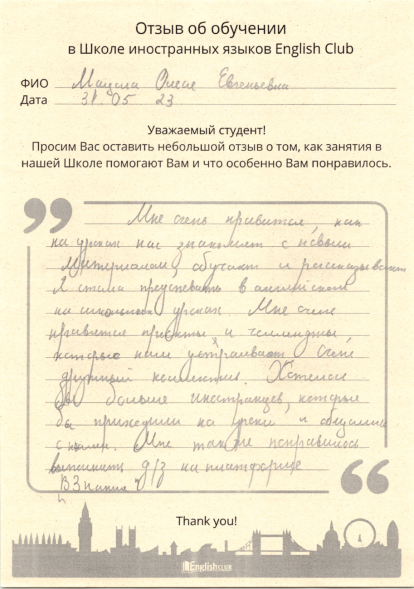 Отзыв об обучении
в Школе иностранных языков English Club
ФИО Олеся Евгеньевна
Дата 31 05 23
Уважаемый студент!
Просим Вас оставить небольшой отзыв о том, как занятия в
нашей Школе помогают Вам и что особенно Вам понравилось.
Мне очень нравится, как
на уроках нас знакомят с новым
материалом, обучают и
Я стала в английском
на школьных уроках. Мне очень
нравится проекты и челленджи,
которые нам устраивают. Очень
дружный коллектив. Хотелось
бы больше иностранцев, которые
бы приходили на уроки и общались
с нами. Мне также понравилось
выполнять д/з на платформе
ВЗнания
Thank you!
English CLUB